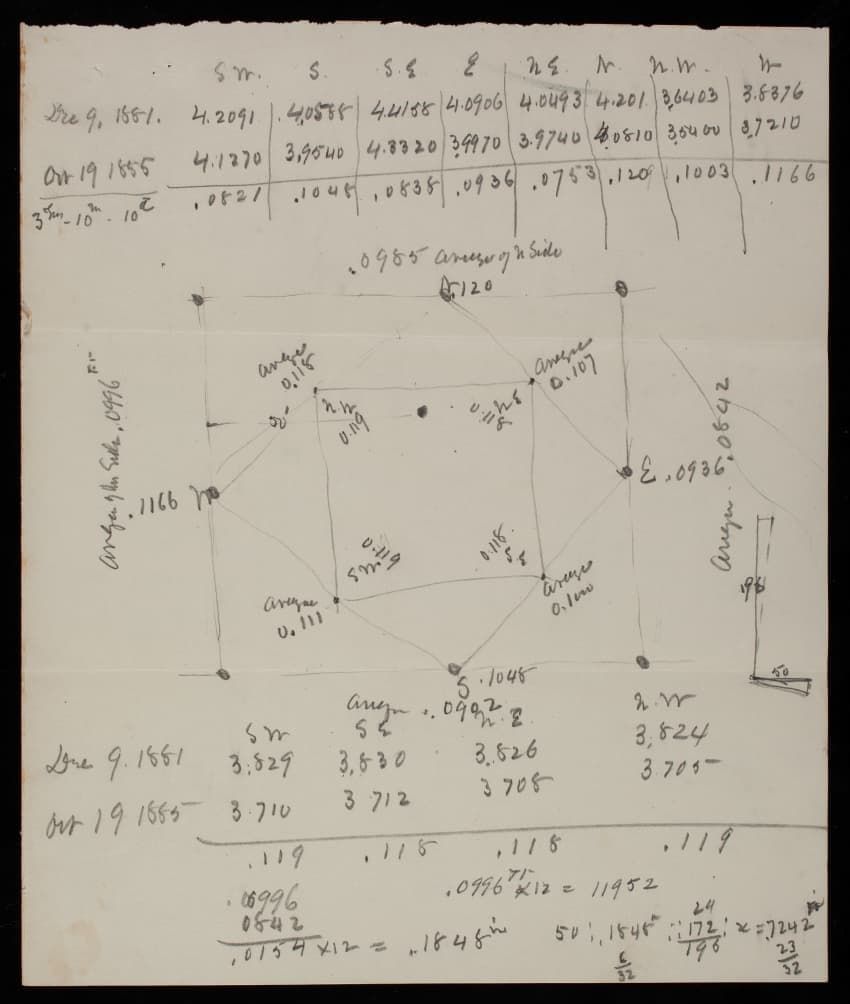 S.W. S. S.E E N.E. N. N.W. W
Dec 9, 1881. 4.2091 4.0588 4.4158 4.0906 4.0493 4.201 3.6403 3.8376
Oct 19 1885 4.1270 3.9540 4.3320 3.9970 3.9740 4.0810 3.5400 3.7210
.0821 .1048 .0838 .0936 .0753 .120 .1003 .1166
.0985 average of N Side
N .120
average
0.118
average
0.107
N.W
0.119
N.E
0.118
average of W Side .0996 Ft
.1166 W
E .0936
average .0842
0.119
S.W
0.118
S.E
average
0.111
average
0.100
198
50
S .1048
average .0902
S W S E N.E. N.W
Dec 9. 1881 3.829 3.830 3.826 3.824
Oct 19 1885 3.710 3.712 3.708 3.705
.119 .118 .118 .119
.0996
0842
.0154 x12 = .1848 in
.0996 Ft x12 = 11952
50 : .1848 :: 172 : x = .7242
24
196
6/32
23/32